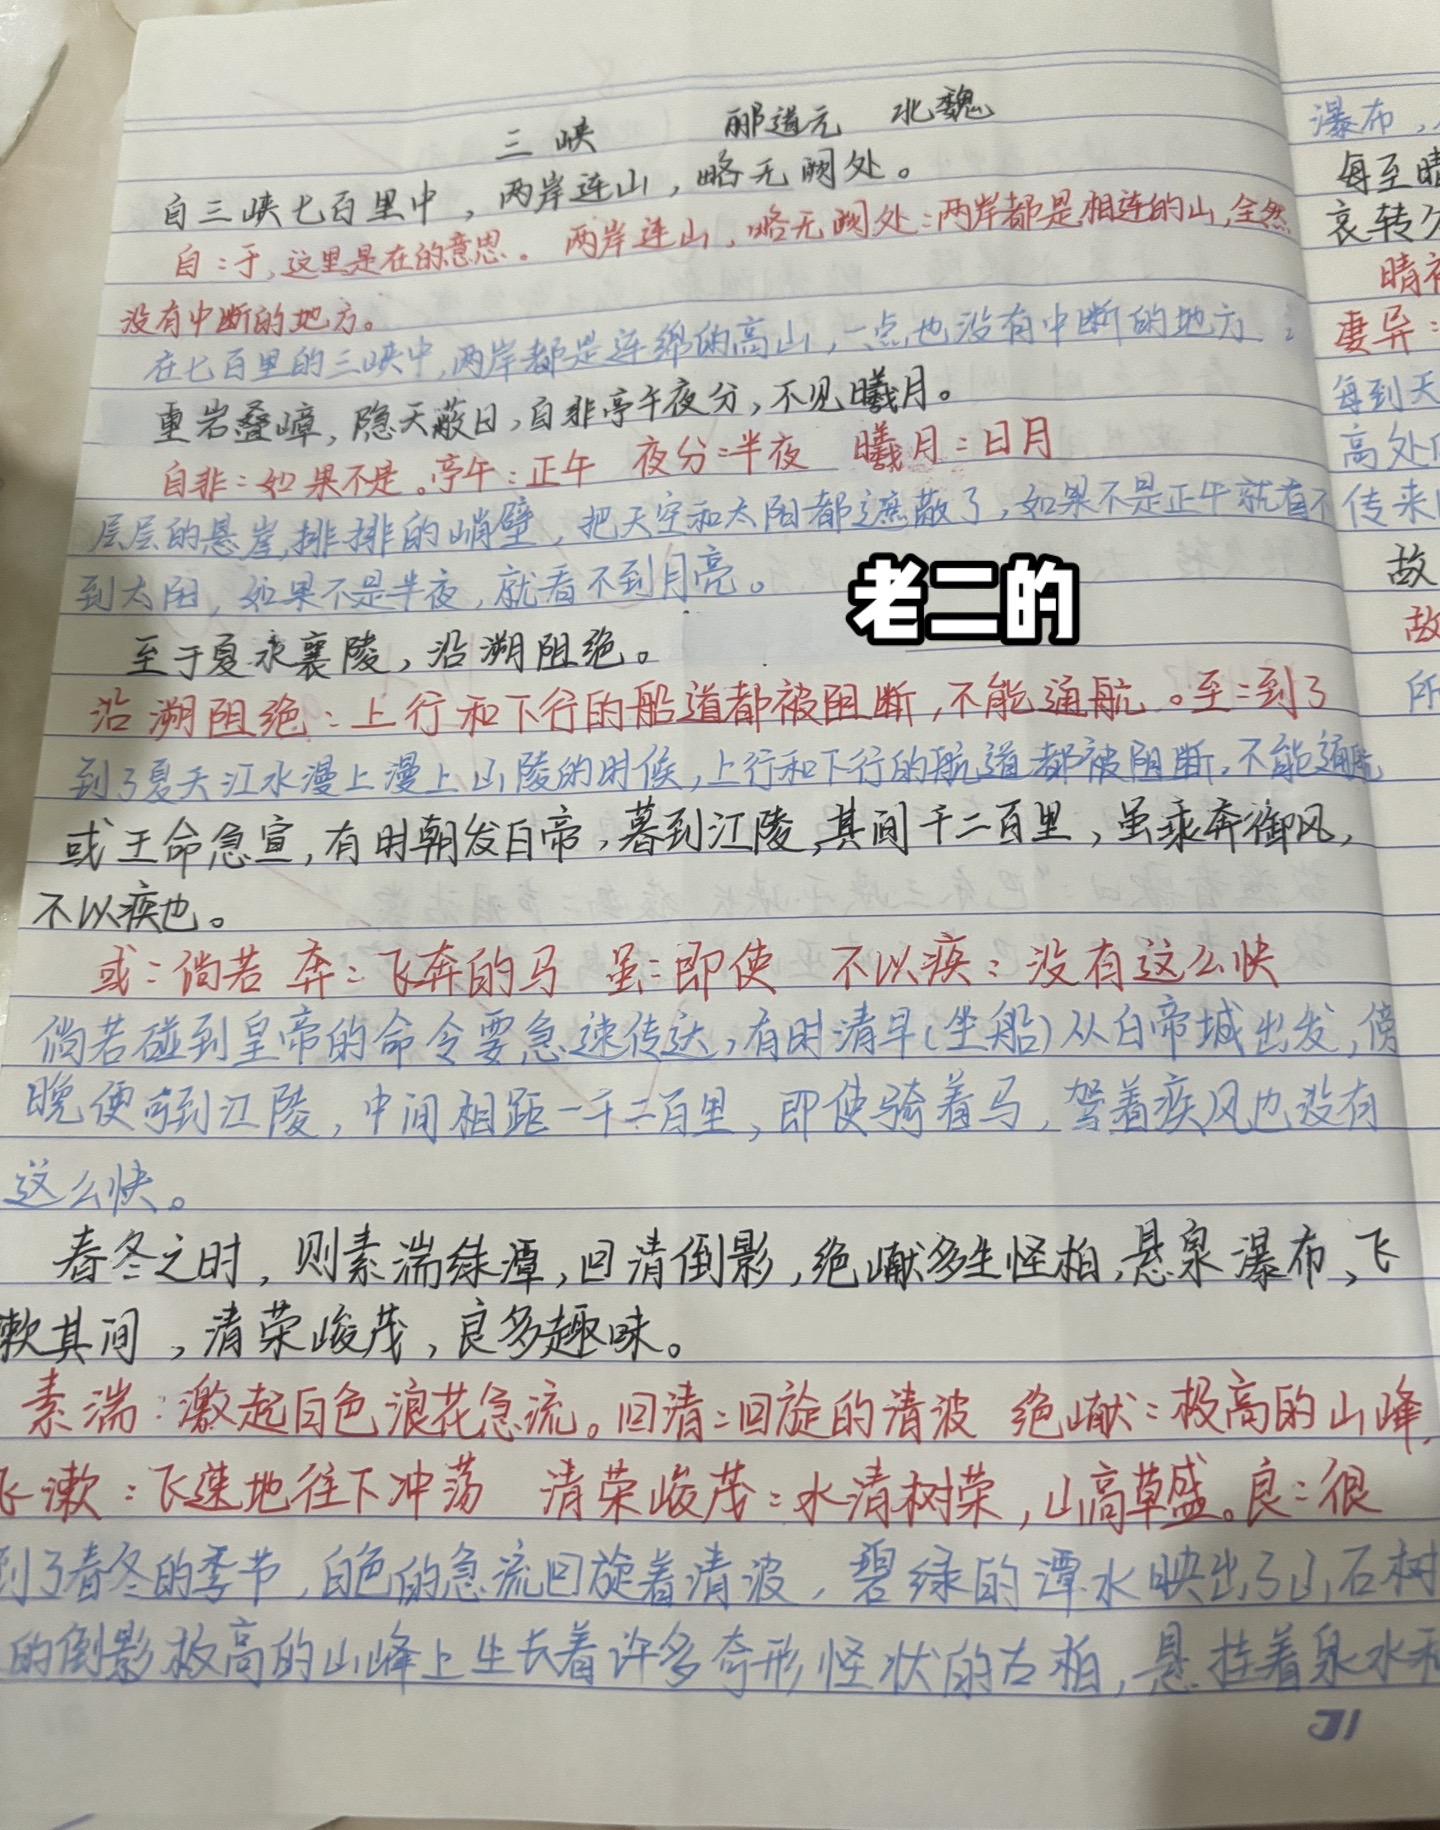 三峡 郦道元 北魏
自三峡七百里中，两岸连山，略无阙处。
自：于，这里是在的意思。 两岸连山，略无阙处：两岸都是相连的山，全然
没有中断的地方。
在七百里的三峡中，两岸都是连绵的高山，一点也没有中断的地方；
重岩叠嶂，隐天蔽日，自非亭午夜分，不见曦月。
自非：如果不是。亭午：正午 夜分：半夜 曦月：日月
层层的悬崖，排排的峭壁，把天空和太阳都遮蔽了，如果不是正午就看不
到太阳，如果不是半夜，就看不到月亮。
老二的
至于夏水襄陵，沿溯阻绝。
沿溯阻绝：上行和下行的船道都被阻断，不能通航。至：到了
到了夏天江水漫上漫上山陵的时候，上行和下行的航道都被阻断，不能通航
或王命急宣，有时朝发白帝，暮到江陵，其间千二百里，虽乘奔御风，
不以疾也。
或：倘若 奔：飞奔的马 虽：即使 不以疾：没有这么快
倘若碰到皇帝的命令要急速传达，有时清早(坐船)从白帝城出发，傍
晚便可到江陵，中间相距一千二百里，即使骑着马，驾着疾风也没有
这么快。
春冬之时，则素湍绿潭，回清倒影，绝巘多生怪柏，悬泉瀑布，飞
漱其间，清荣峻茂，良多趣味。
素湍：激起白色浪花急流。回清：回旋的清波 绝巘：极高的山峰，
飞漱：飞速地往下冲荡 清荣峻茂：水清树荣，山高草盛。良：很
到了春冬的季节，白色的急流回旋着清波，碧绿的潭水映出了山石树
的倒影极高的山峰上生长着许多奇形怪状的古柏，悬挂着泉水和
31
瀑布，
每至晴
哀转
晴初
凄异：
每到天
高处
传来
故
故
所